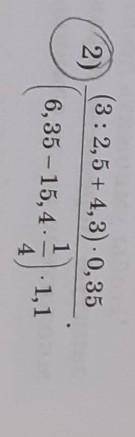 2) \frac{(3 : 2,5 + 4,3) \cdot 0,35}{\left(6,35 - 15,4 \cdot \frac{1}{4}\right) \cdot 1,1}.